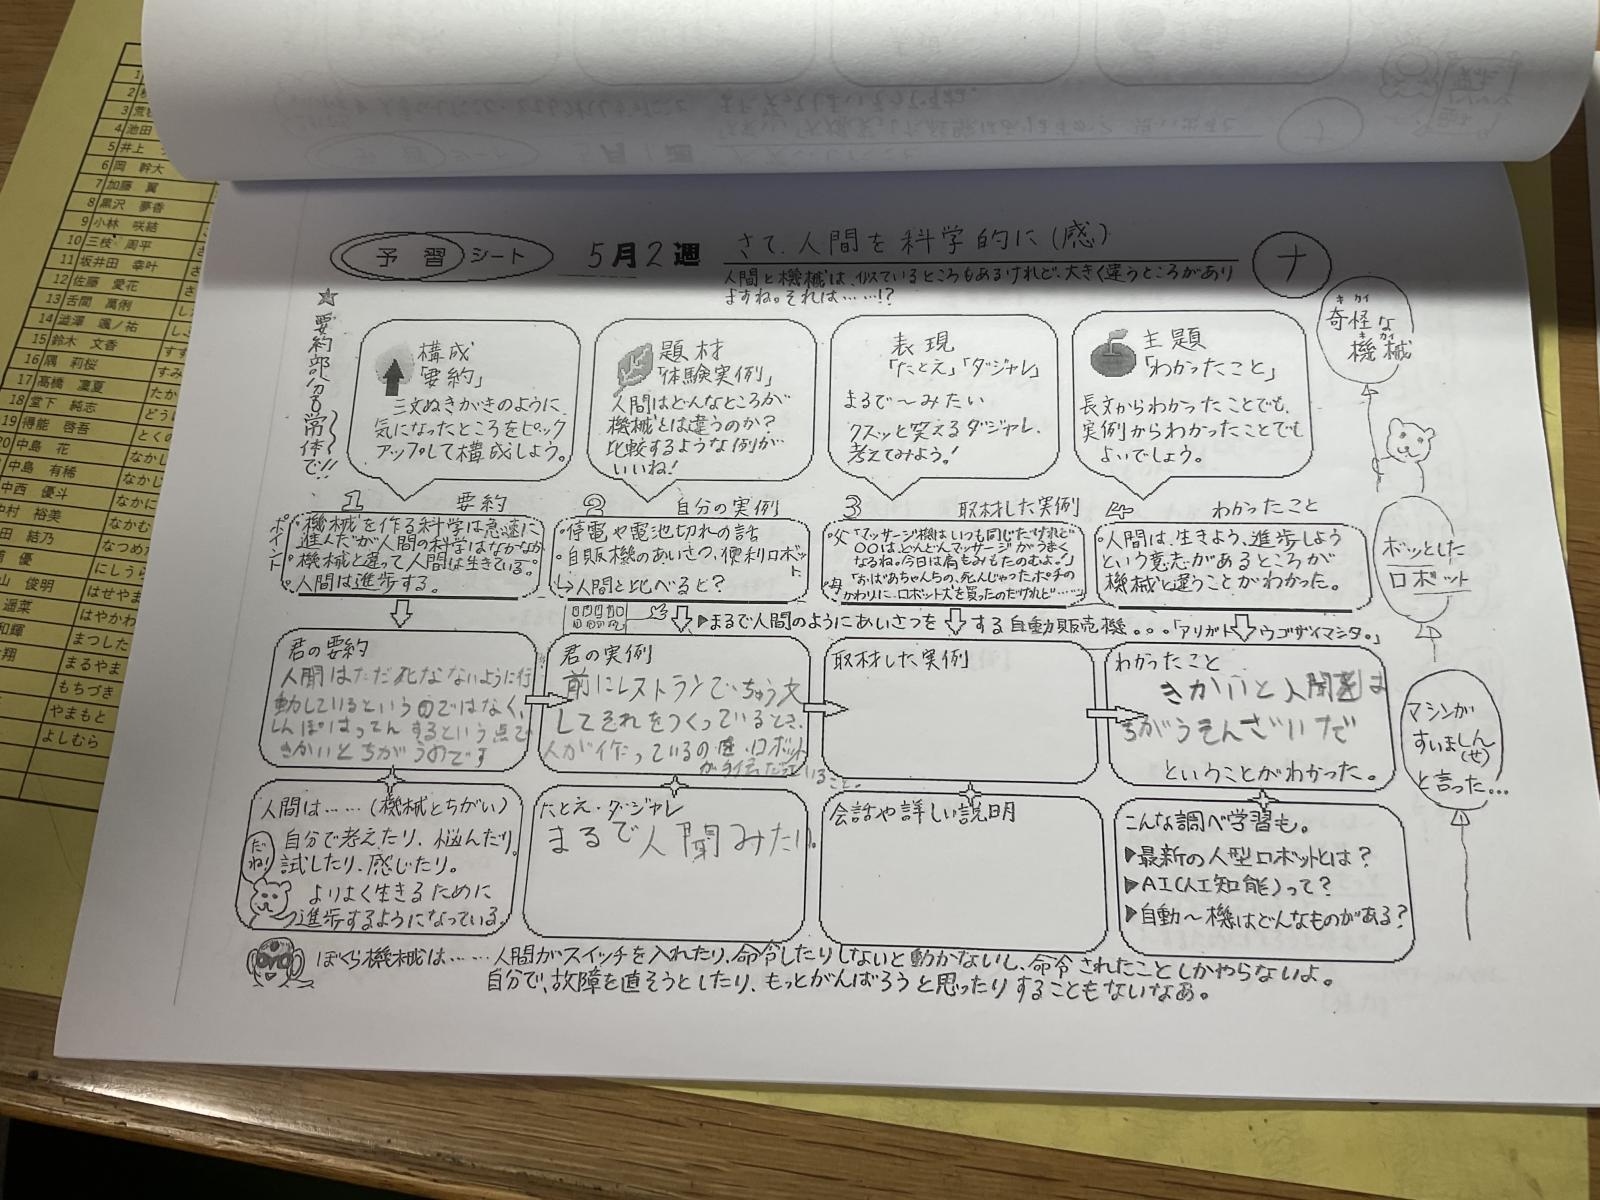 予習シート
5月2週
さて、人間を科学的に(感)
ナ
人間と機械は、似ているところもあるけれど、大きく違うところがあり
ますね。それは……!?
☆要約部分も常体で!!
構成
「要約」
三文ぬきがきのように、
気になったところをピック
アップして構成しよう。
題材
「体験実例」
人間はどんなところが
機械とは違うのか?
比較するような例が
いいね!
表現
「たとえ」「ダジャレ」
まるで〜みたい
クスッと笑えるダジャレ、
考えてみよう!
主題
「わかったこと」
長文からわかったことでも、
実例からわかったことでも
よいでしょう。
キカイ
奇怪な
キカイ
機械
1 要約
ポイント
・機械を作る科学は急速に
進んだが人間の科学はなかなか。
・機械と違って人間は生きている。
・人間は進歩する。
2 自分の実例
・停電や電池切れの話
・自販機のあいさつ、便利ロボット
→人間と比べると?
3 取材した実例
・父「マッサージ機はいつも同じだけれど
〇〇はどんどんマッサージがうまく
なるね。今日は肩もみもたのむよ。」
・母「おばあちゃんちの、死んじゃったポチの
かわりに、ロボット犬を買ったのだけれど……
4 わかったこと
・人間は、生きよう、進歩しよう
という意志があるところが
機械と違うことがわかった。
ボッとした
ロボット
▶まるで人間のようにあいさつをする自動販売機。。。「アリガトウゴザイマシタ。」
君の要約
人間はただ死なないように行
動しているというのではなく、
しんぽはってんするという点で
きかいとちがうのです
君の実例
前にレストランでちゅう文
してそれをつくっているとき、
人が作っているの
ロボット
が手伝だっていること。
取材した実例
わかったこと
きかいと人間は
ちがうそんざいだ
ということがわかった。
マシンが
すいましん
(せ)
と言った…
人間は……(機械とちがい)
自分で考えたり、悩んだり、
試したり、感じたり。
よりよく生きるために
進歩するようになっている。
だね!
たとえ・ダジャレ
まるで人間みたい。
会話や詳しい説明
こんな調べ学習も。
▶最新の人型ロボットとは?
▶AI(人工知能)って?
▶自動〜機はどんなものがある?
ぼくら機械は……人間がスイッチを入れたり、命令したりしないと動かないし、命令されたことしかやらないよ。
自分で、故障を直そうとしたり、もっとがんばろうと思ったりすることもないなあ。
4 池田
5 井上
6 岡 幹大
7 加藤 翼
8 黒沢 夢香
9 小林 咲結
10 三枝 周平
11 坂井田 幸叶
12 佐藤 愛花
13 舌間 萬俐
14 澁澤 颯ノ祐
15 鈴木 文香
16 隅 莉桜
17 髙橋 凜夏
18 堂下 純志
19 得能 啓吾
20 中島 花
中島 有稀
中西 優斗
中村 裕美
田 結乃
優
山 俊明
遥菜
和輝
翔
なかに
なかむ
なつめ
にしうら
はせやま
はやかわ
まつした
まるやま
もちづき
やまもと
よしむら